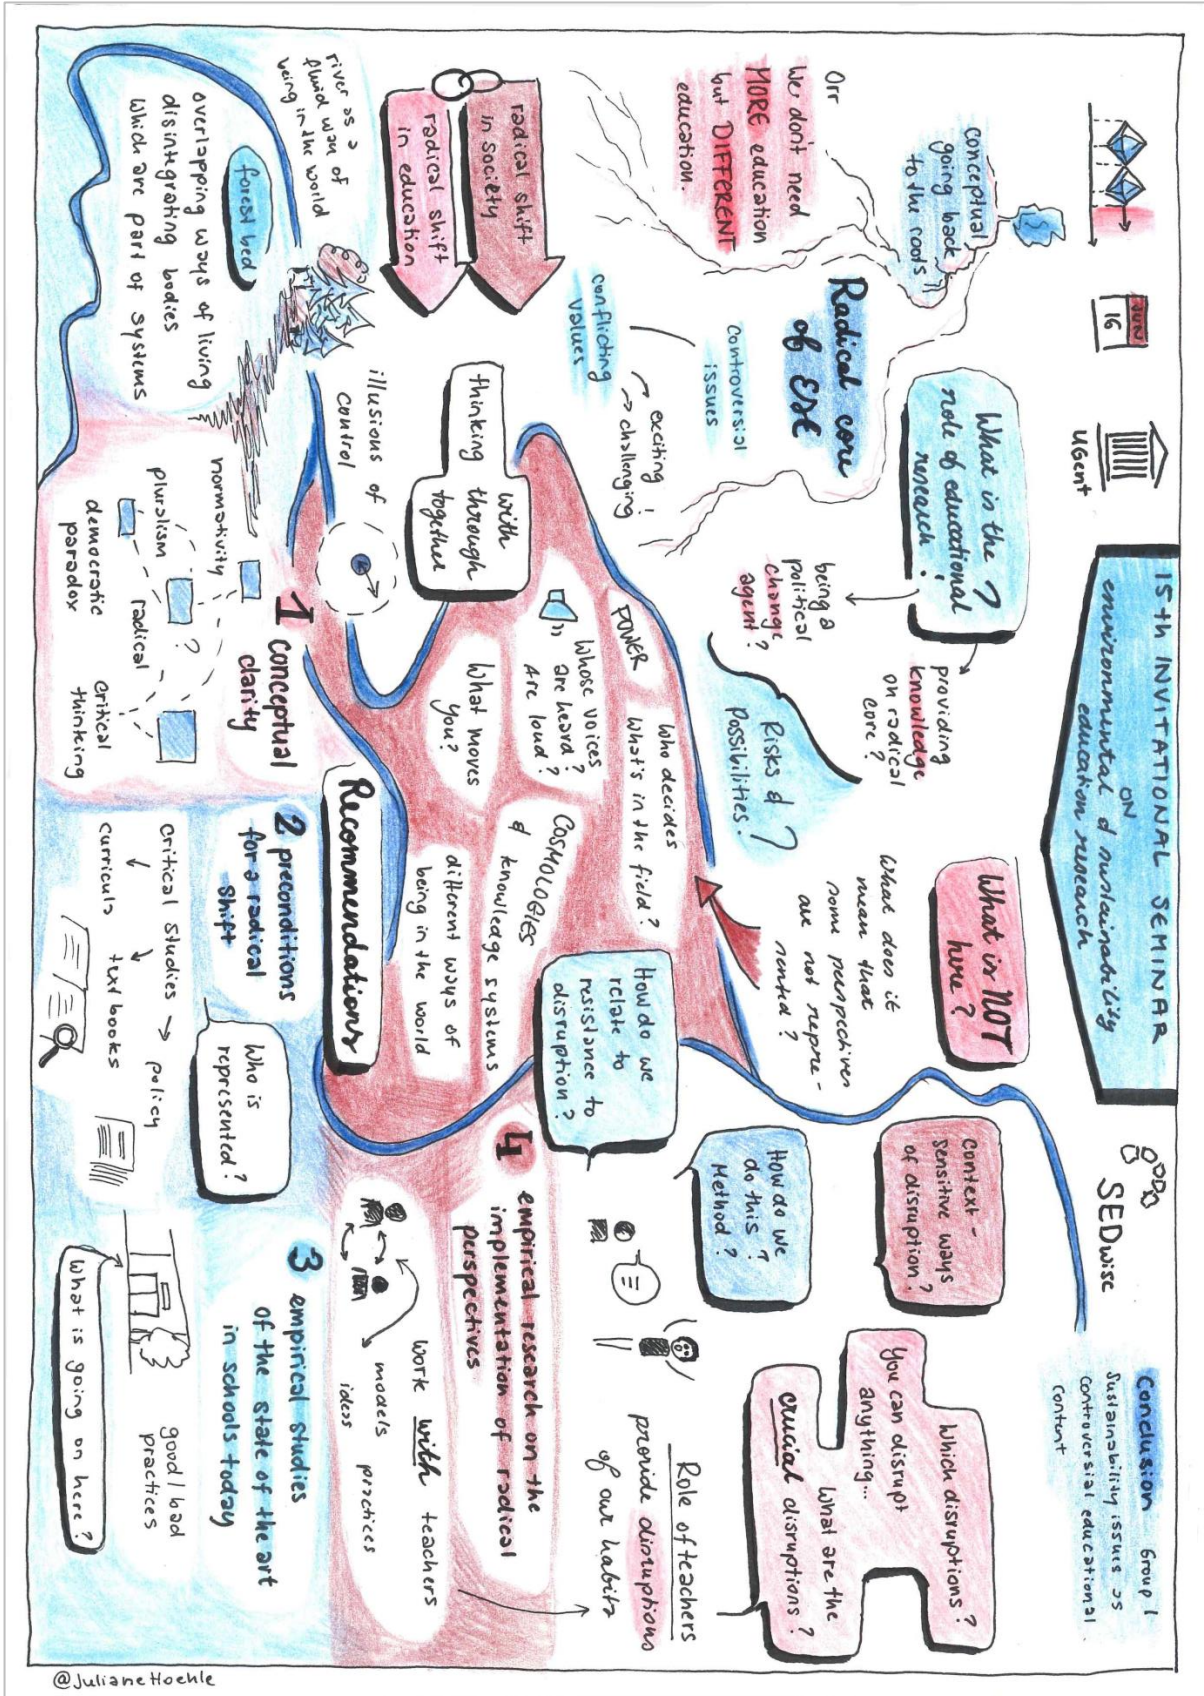 JUN
16
UGent
15th INVITATIONAL SEMINAR
ON
environmental & sustainability
education research
SEDwise
Conclusion Group 1
Sustainability issues as
controversial educational
content
conceptual
going back
to the roots
Orr
We don't need
MORE education
but DIFFERENT
education.
Radical core
of ESE
controversial
issues
conflicting
values
→ exciting
→ challenging!
What is the
role of educational
research?
being a
political
change
agent?
providing
knowledge
on radical
core?
Risks &
Possibilities?
What is NOT
here?
What does it
mean that
some perspectives
are not repre-
sented?
Context-
sensitive ways
of disruption?
How do we
do this?
Method?
How do we
relate to
resistance to
disruption?
Which disruptions?
You can disrupt
anything...
What are the
crucial disruptions?
Role of teachers
provide disruptions
of our habits
radical shift
in society
radical shift
in education
river as a
fluid way of
being in the world
forest bed
overlapping ways of living
disintegrating bodies
which are part of systems
thinking
with
through
together
illusions of
control
POWER
Who decides
what's in the field?
Whose voices
are heard?
Are loud?
What moves
you?
COSMOLOGIES
& knowledge systems
different ways of
being in the world
Recommendations
1 conceptual
clarity
normativity
pluralism
?
radical
democratic
paradox
critical
thinking
2 preconditions
for a radical
shift
critical studies → policy
curricula
text books
Who is
represented?
3 empirical studies
of the state of the art
in schools today
good / bad
practices
What is going on here?
4 empirical research on the
implementation of radical
perspectives
work with teachers
models
ideas
practices
@JulianeHoehle